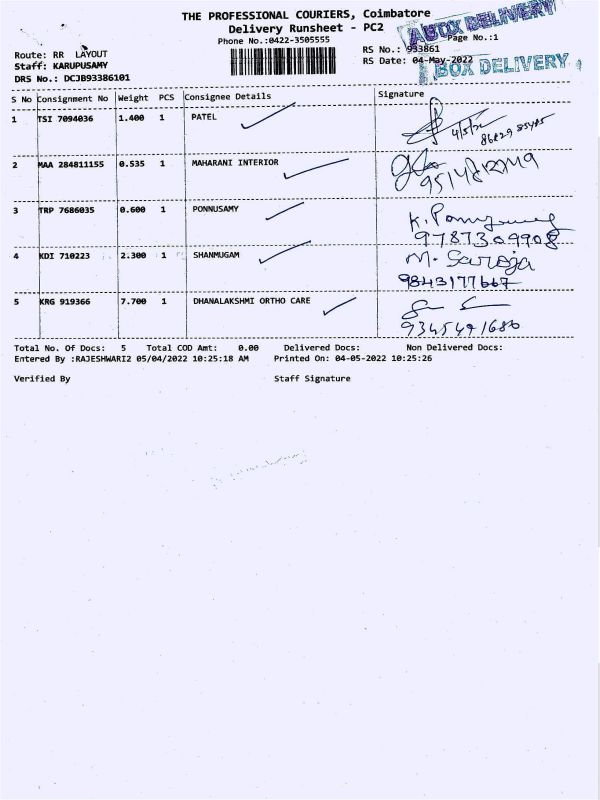 THE PROFESSIONAL COURIERS, Coimbatore
Delivery Runsheet - PC2
Phone No.:0422-3505555
ABOX DELIVERY
Page No.:1
RS No.: 933861
RS Date: 04-May-2022
BOX DELIVERY
Route: RR LAYOUT
Staff: KARUPUSAMY
DRS No.: DCJB93386101
S No Consignment No Weight PCS Consignee Details Signature
1 TSI 7094036 1.400 1 PATEL
4/5/22
2 MAA 284811155 0.535 1 MAHARANI INTERIOR
3 TRP 7686035 0.600 1 PONNUSAMY
9787309908
4 KDI 710223 2.300 1 SHANMUGAM M. Saroja
9843177667
5 KRG 919366 7.700 1 DHANALAKSHMI ORTHO CARE
9345491686
Total No. Of Docs: 5 Total COD Amt: 0.00 Delivered Docs: Non Delivered Docs:
Entered By :RAJESHWARI2 05/04/2022 10:25:18 AM Printed On: 04-05-2022 10:25:26
Verified By Staff Signature